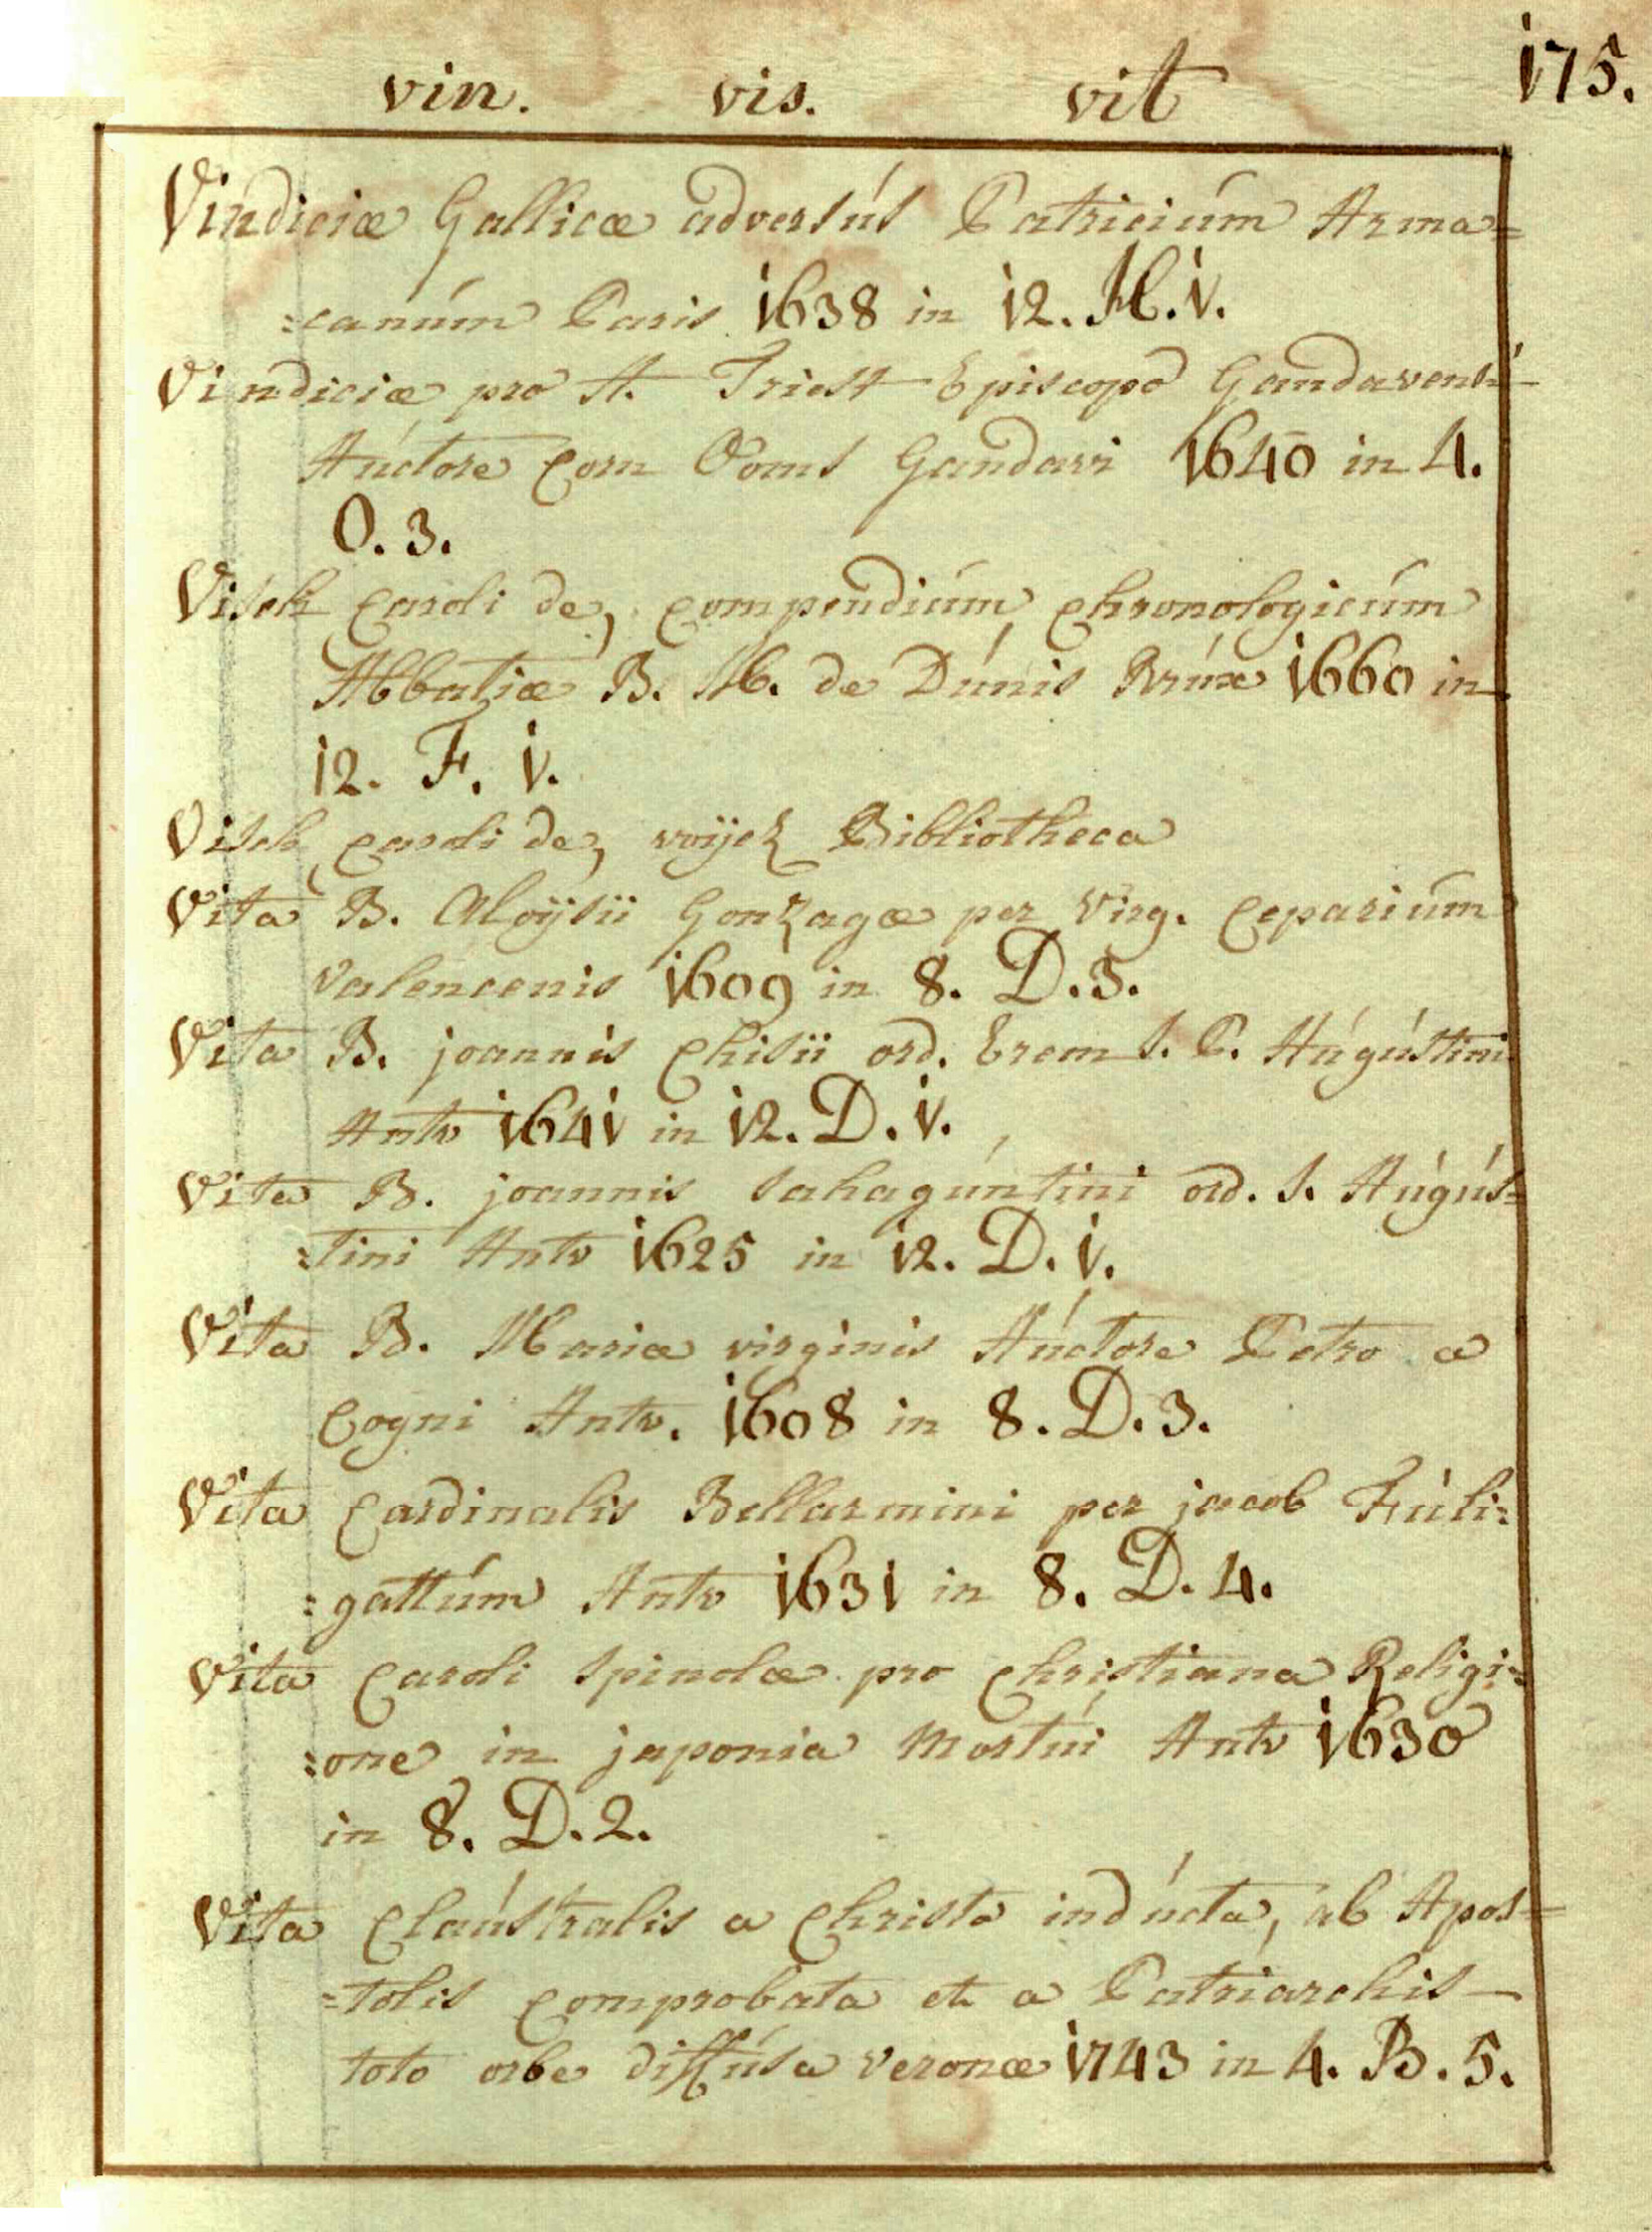 175.
vin. vis. vit
Vindiciæ Gallicæ adversús Patriciúm Arma=
=canúm Paris 1638 in 12. M. 1.
Vindiciæ pro A. Triest Episcopo Gandavensi
Aúctore Corn Ooms Gandavi 1640 in 4.
O. 3.
Visch Caroli de, Compendiúm Chronologicúm
Abbatiæ B. M. de Dúnis Brúx 1660 in
12. F. 1.
Visch Caroli de, voÿez Bibliotheca
Vita B. Aloÿsii Gonzagæ per Virg. Cepariúm
Valencenis 1609 in 8. D. 3.
Vita B. joannis Chisii ord. Erem S. P. Aúgústini
Antv 1641 in 12. D. 1.
Vita B. joannis Sahagúntini ord. S. Aúgús=
=tini Antv 1625 in 12. D. 1.
Vita B. Mariæ virginis Aúctore Petro a
Cogni Antv. 1608 in 8. D. 3.
Vita Cardinalis Bellarmini per jacob Fúli=
=gattúm Antv 1631 in 8. D. 4.
Vita Caroli Spinolæ pro Christiana Religi=
=one in japonia Mortúi Antv 1630
in 8. D. 2.
Vita Claústralis a Christo indúcta, ab Apos=
=tolis Comprobata et a Patriarchis
toto orbe diffúsa Veronæ 1743 in 4. B. 5.